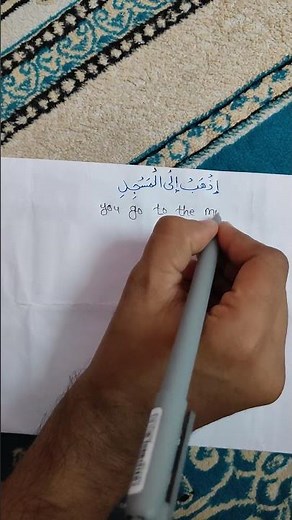 إِذْهَبْ إِلَى الْمَسْجِدِ
you go to the m